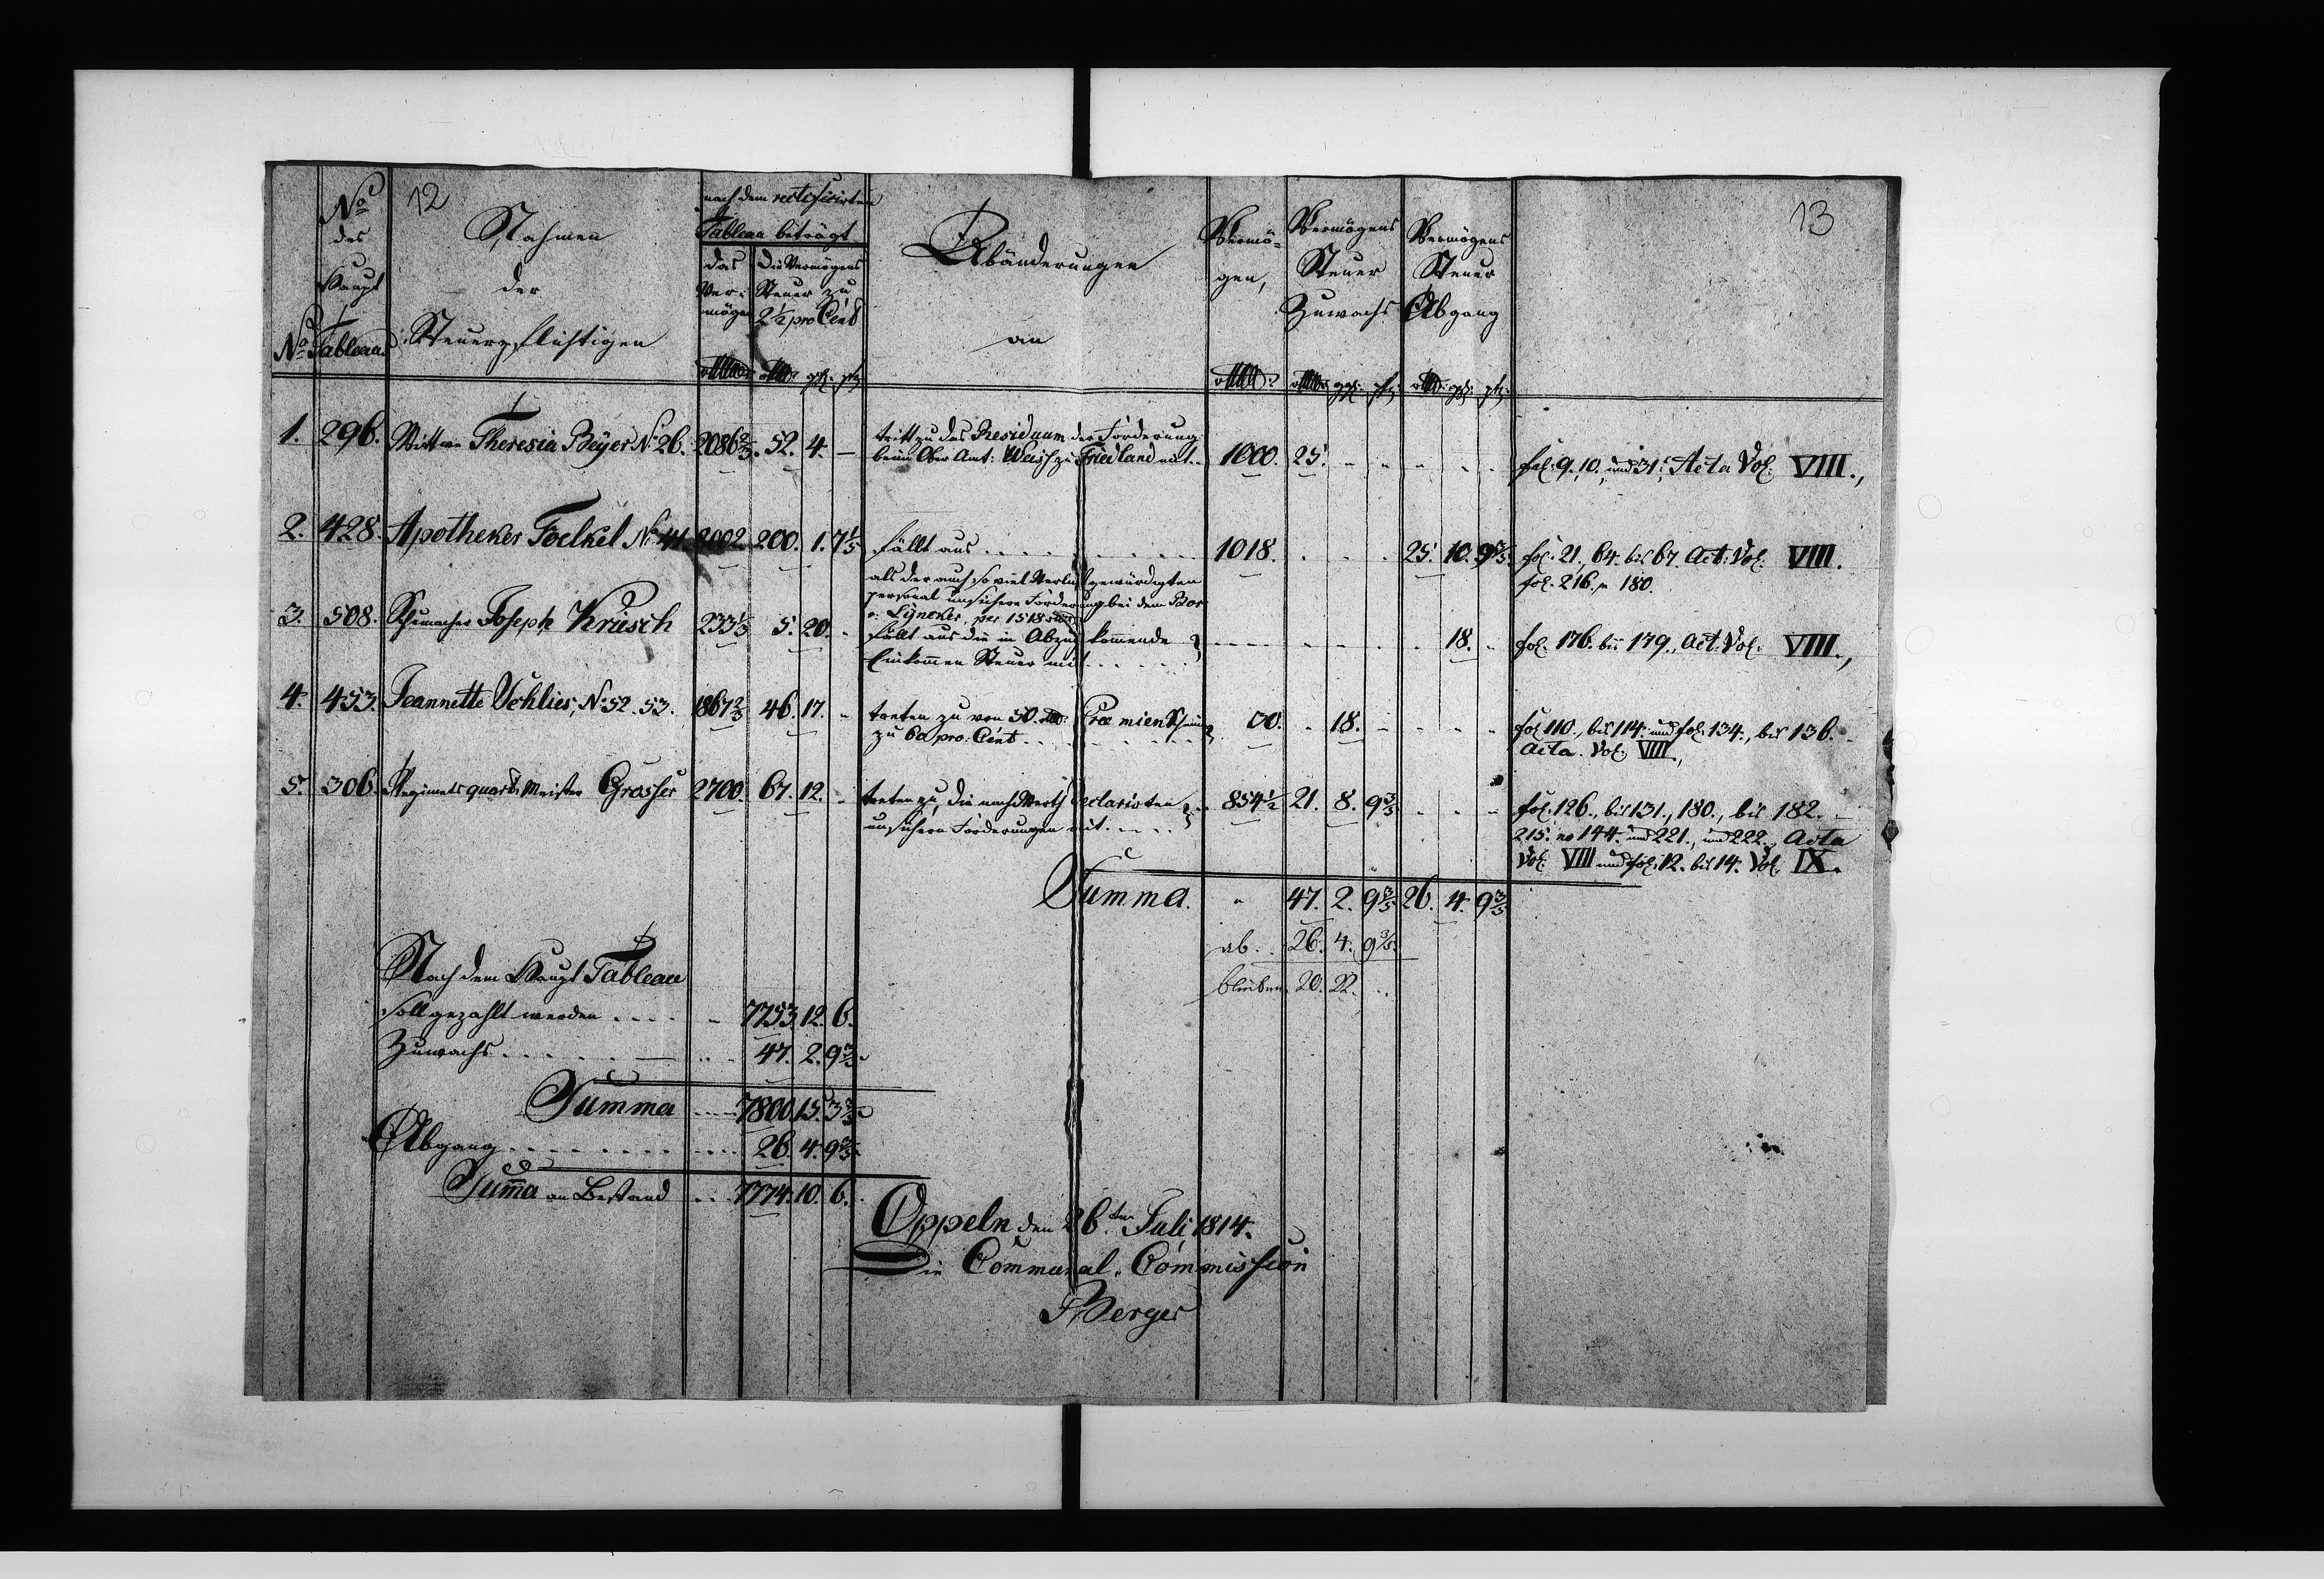 12
13
No des Haupt Tableau
No
Nahmen
der
Steuerpflichtigen
nach dem rectificirten
Tableau beträgt
das Vermögen
Die Vermögens
Steuer zu
2 1/2 pro Cent
Abänderungen
an
Vermögen,
Vermögens
Steuer
Zuwachs
Vermögens
Steuer
Abgang
1. 296. Wittwe Theresia Beÿer No 26. 2086 2/3. 52. 4. —
tritt zu das Residuum der Forderung
beim Ober Amt: Weiss zu Friedland mit. 1000. 25.
fol: 9. 10. und 31., Acta Vol: VIII.,
2. 428. Apotheker Foelkel No 44. 8002. 200. 1. 7 1/5
fällt aus . . . . 1018. 25. 10. 9 3/5.
als der auch so viel gewürdigten
personal unsichere Forderung bei dem
Lÿncker, per 1518
fol: 21., 64. bis 67. Act: Vol: VIII.
fol: 216. 180.
3. 508. Schumacher Joseph Krüsch 233 1/3 5. 20.
fällt aus die in Abzug kommende
Einkommen Steuer mit . . . . . 18.
fol: 176. bis 179., Act: Vol: VIII.,
4. 453. Jeannette Schlies, No 52. 53. 1867 2/3 46. 17.
treten zu von 50. Praemien Schein
zu 60 pro: Cent . . . 30. 18.
fol: 110., bis 114. und fol: 134., bis 136.
Acta. Vol: VIII.,
5. 306. Regiments quart: Meister Grosser 2700. 67. 12.
treten zu, die nach Werth declarirten
unsichern Forderungen mit . . . . 854 1/2 21. 8. 9 3/5
fol: 126., bis 131., 180., bis 182.
215. 144. und 221., und 222., Acta
Vol: VIII und fol: 12. bis 14. Vol: IX.
Summa. 47. 2. 9 3/5 26. 4. 9 3/5
ab . . 26. 4. 9 3/5.
bleiben 20. 22.
Nach dem Haupt Tableau
soll gezahlt werden . . . . 7753. 12. 6.
Zuwachs . . . . . 47. 2. 9 3/5
Summa . . . 7800. 15. 3 3/5
Abgang . . . . . . 26. 4. 9 3/5
Summa an Bestand . . 7774. 10. 6.
Oppeln den 26ten Juli 1814.
Die Communal. Commission
Berger